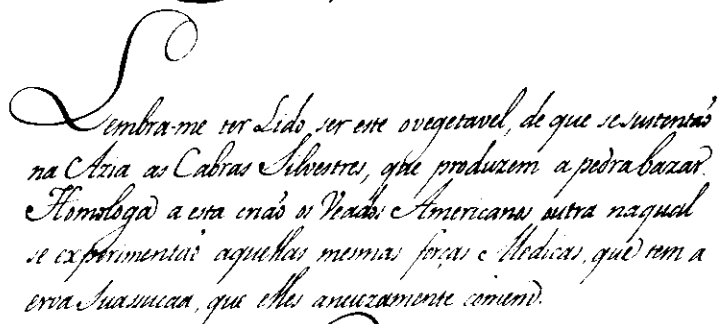 Lembra-me ter Lido, ser este o vegetavel, de que se sustentaõ
na Azia as Cabras Silvestres, que produzem a pedra bazar.
Homologa a esta criaõ os Veados Americanos outra naqual
se experimentaõ aquellas mesmas forças Medicas, que tem a
erva Suasucaa, que elles anciozamente comem.